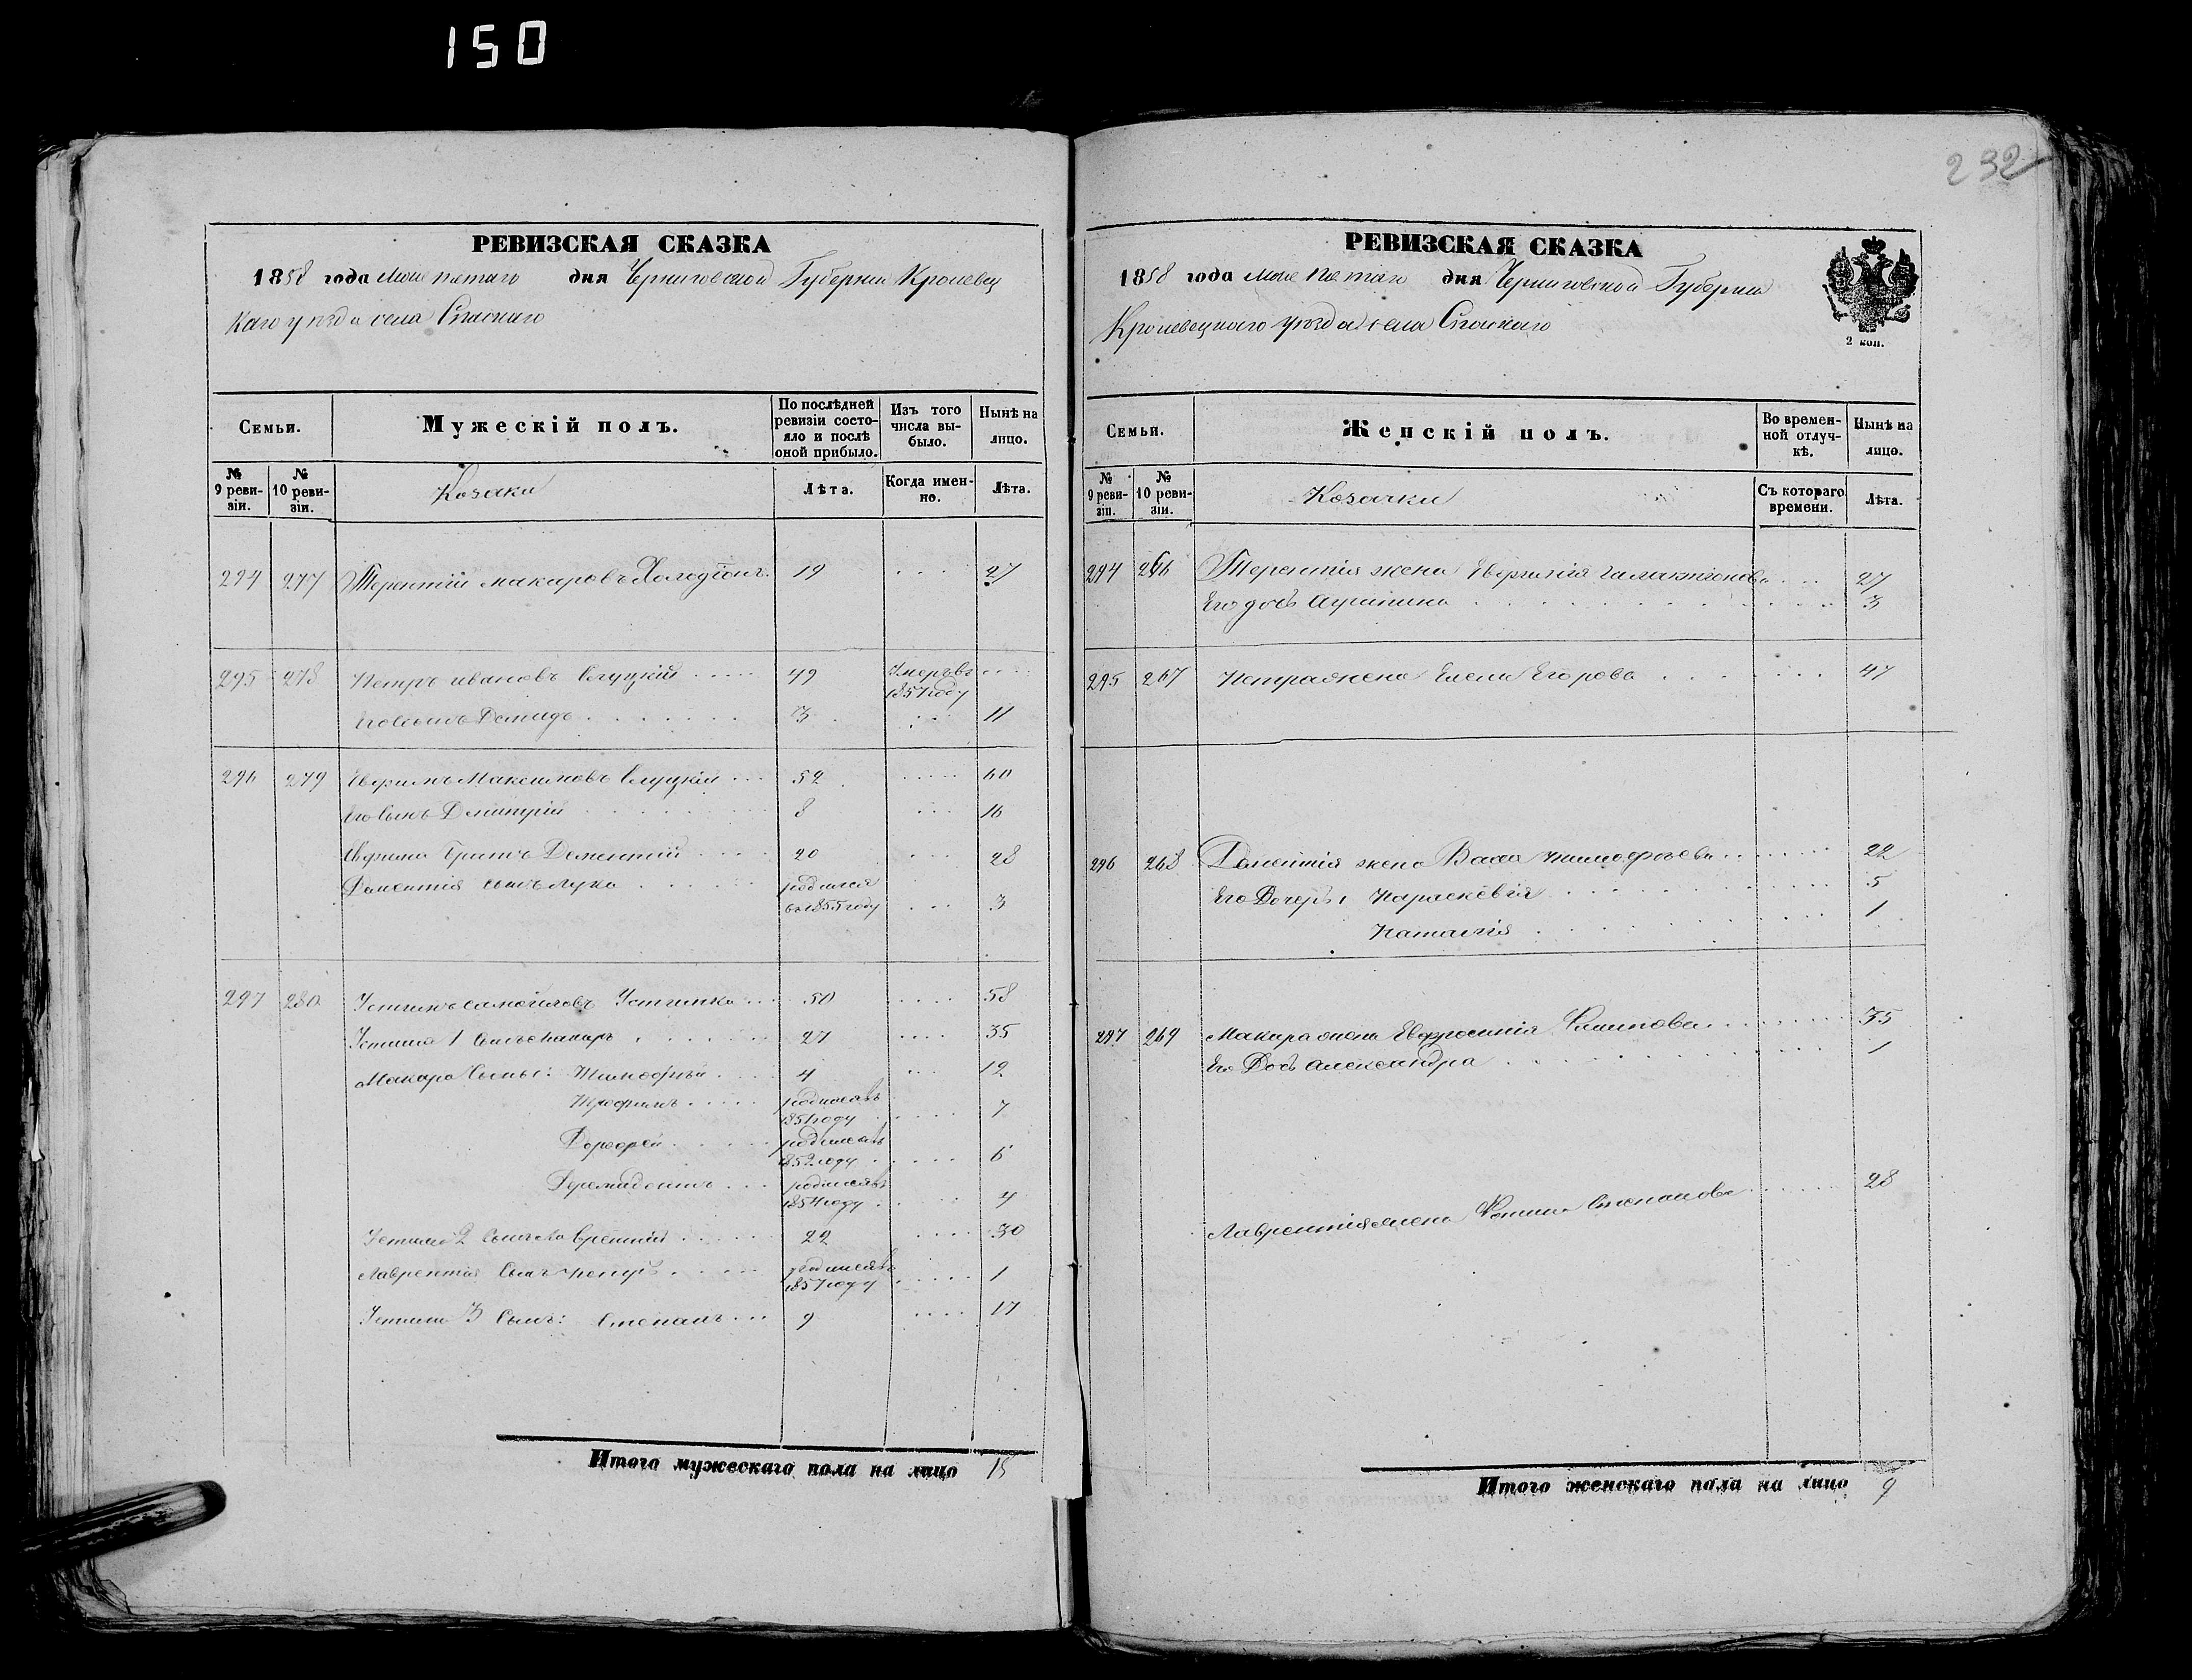 150
232
РЕВИЗСКАЯ СКАЗКА
1858 года мая пятаго дня Черниговской Губернии Кролевец
каго уезда села Спаскаго
Семьи.
Мужескій полъ.
По послѣдней ревизіи состояло и послѣ оной прибыло.
Изъ того числа выбыло.
Нынѣ на лицо.
№ 9 ревизіи.
№ 10 ревизіи.
Козаки
Лѣта.
Когда именно.
Лѣта.
294 277 Терентій Макаровъ Холодіонъ. 19 . . . 27
295 278 Петръ Ивановъ Слуцкій . . . . . 49 Умеръ въ 1857 году . . . .
Его Сынъ Демидъ . . . . . . . 3 . . . 11
296 279 Евфимъ Максимовъ Слуцкій . . . 52 . . . . . 60
Его Сынъ Дмитрій . . . . . . . 8 . . . . 16
Евфима Братъ Дементій . . . . 20 . . . 28
Дементія сынъ Лука . . . . . . родился въ 1855 году . . . 3
297 280 Устинъ Самойловъ Устименко . . . 50 . . . . 58
Устина 1 Сынъ Макаръ . . . . . . 27 . . . . 35
Макара Сыны: Тимофѣй . . . . 4 . . . 12
Трофимъ . . . . . родился въ 1851 году . . . . . 7
Дорофей . . . . . родился въ 1852 году . . . . . 6
. . . родился въ 1854 году . . . . . 4
Устина 2 Сынъ Лаврентій . . . . . . 22 . . . . 30
Лаврентія Сынъ . . . . . родился въ 1857 году . . . . . 1
Устина 3 Сынъ: Степанъ . . . 9 . . . . 17
Итого мужескаго пола на лицо 15
РЕВИЗСКАЯ СКАЗКА
1858 года мая пятаго дня Черниговской Губернии
Кролевецкаго уезда села Спаскаго
2 коп.
Семьи.
Женскій полъ.
Во временной отлучкѣ.
Нынѣ на лицо.
№ 9 ревизіи.
№ 10 ревизіи.
Козачки
Съ котораго времени.
Лѣта.
294 266 Терентія жена . . . 27
Его дочь Акулина . . . . . . . . . . 3
295 267 Петра жена Елена Егорова . . . . . . . 47
296 268 Дементія жена Васса Тимофѣева . . . . . . . . 22
Его Дочери: Параскевія . . . . . . . . . 5
Наталія . . . . . . . . . 1
297 269 Макара жена Евфросинія Филипова . . . . . . . . . 35
Его Дочь Александра . . . . . . . . . . 1
Лаврентія жена Степанова . . . . . . . 28
Итого женскаго пола на лицо 9